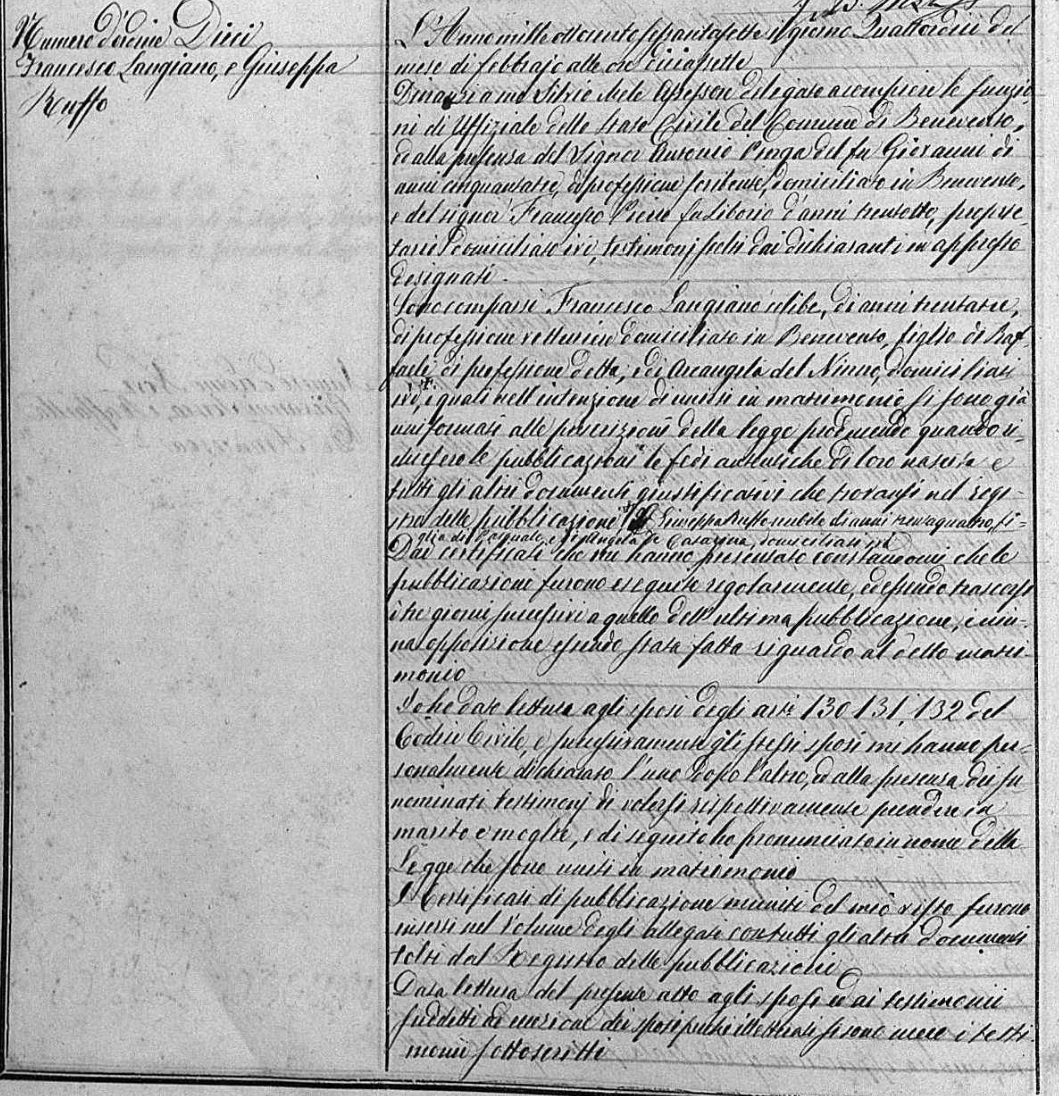 Numero d'ordine Dieci
Francesco Langiano, e Giuseppa
Ruffo
L'Anno mille ottocento settantasette il giorno Quattordici del
mese di febbrajo alle ore diciassette
Dinanzi a me Silvio Mele Assessore delegato a compiere le funzio
ni di Uffiziale dello Stato Civile del Comune di Benevento,
ed alla presenza del Signor Antonio del fu Giovanni di
anni cinquantatre, di professione domiciliato in Benevento,
e del signor Francesco fu Liborio d'anni trentotto, proprie
tario domiciliato ivi, testimonj scelti dai dichiaranti in appresso
designati.
Sono comparsi Francesco Langiano celibe, di anni trentatre,
di professione vetturino domiciliato in Benevento, figlio di Raf
faele, di professione detta, e di Arcangela del Ninno, domiciliati
ivi, i quali nell'intenzione di unirsi in matrimonio si sono già
uniformati alle prescrizioni della legge producendo quando ri-
chiesero le pubblicazioni le fedi autentiche di loro nascita e
tutti gli altri documenti giustificativi che trovansi nel regi-
stro delle pubblicazione Giuseppa Ruffo nubile di anni trentaquattro, fi-
glia di Pasquale, e di Angela de Catarina, domiciliati ivi
Dai certificati che mi hanno presentato constandomi che le
pubblicazioni furono eseguite regolarmente, ed essendo trascorsi
i tre giorni successivi a quello dell'ultima pubblicazione, e niu-
na opposizione essendo stata fatta riguardo al detto matri-
monio
Io ho dato lettura agli sposi degli arti 130 131, 132 del
Codice Civile, e successivamente gli stessi sposi mi hanno per-
sonalmente dichiarato l'uno dopo l'altro, ed alla presenza dei su
nominati testimonj di volersi rispettivamente prendere in
marito e moglie, e di seguito ho pronunciato in nome della
Legge che sono uniti in matrimonio
I Certificati di pubblicazione muniti del mio visto furono
inserti nel Volume degli allegati con tutti gli altri documenti
tolti dal Registro delle pubblicazioni
Data lettura del presente atto agli sposi ed ai testimonii
suddetti ad eccezione dei sposi perché illetterati si sono meco i testi
monii sottoscritti